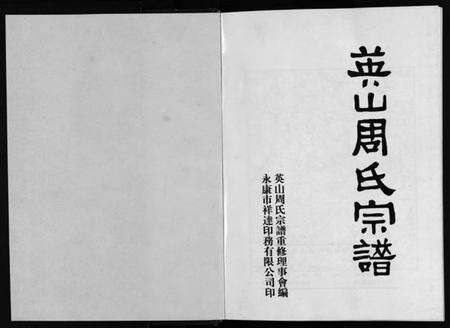 英山周氏宗譜
英山周氏宗譜重修理事會編
永康市祥達印務有限公司印